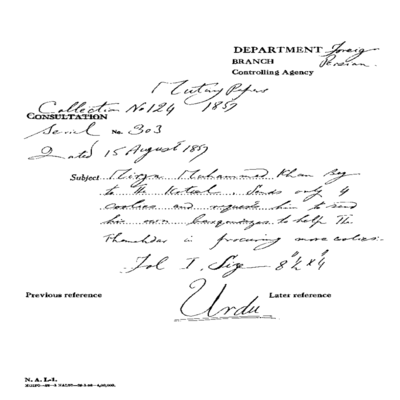 DEPARTMENT Foreign
BRANCH Persian.
Controlling Agency
Mutiny Papers
Collection No 124 1857
CONSULTATION
Serial No. 303
Dated 15 August 1857
Subject Mirza Muhammad Khan Beg
to the Kotwal. Sends only 4
coolies and requests him to send
his own to help the
Thanedar in procuring more coolies.
Fol 1. Size 8"½ x 4"
Previous reference
Later reference
Urdu
N. A. L-1.